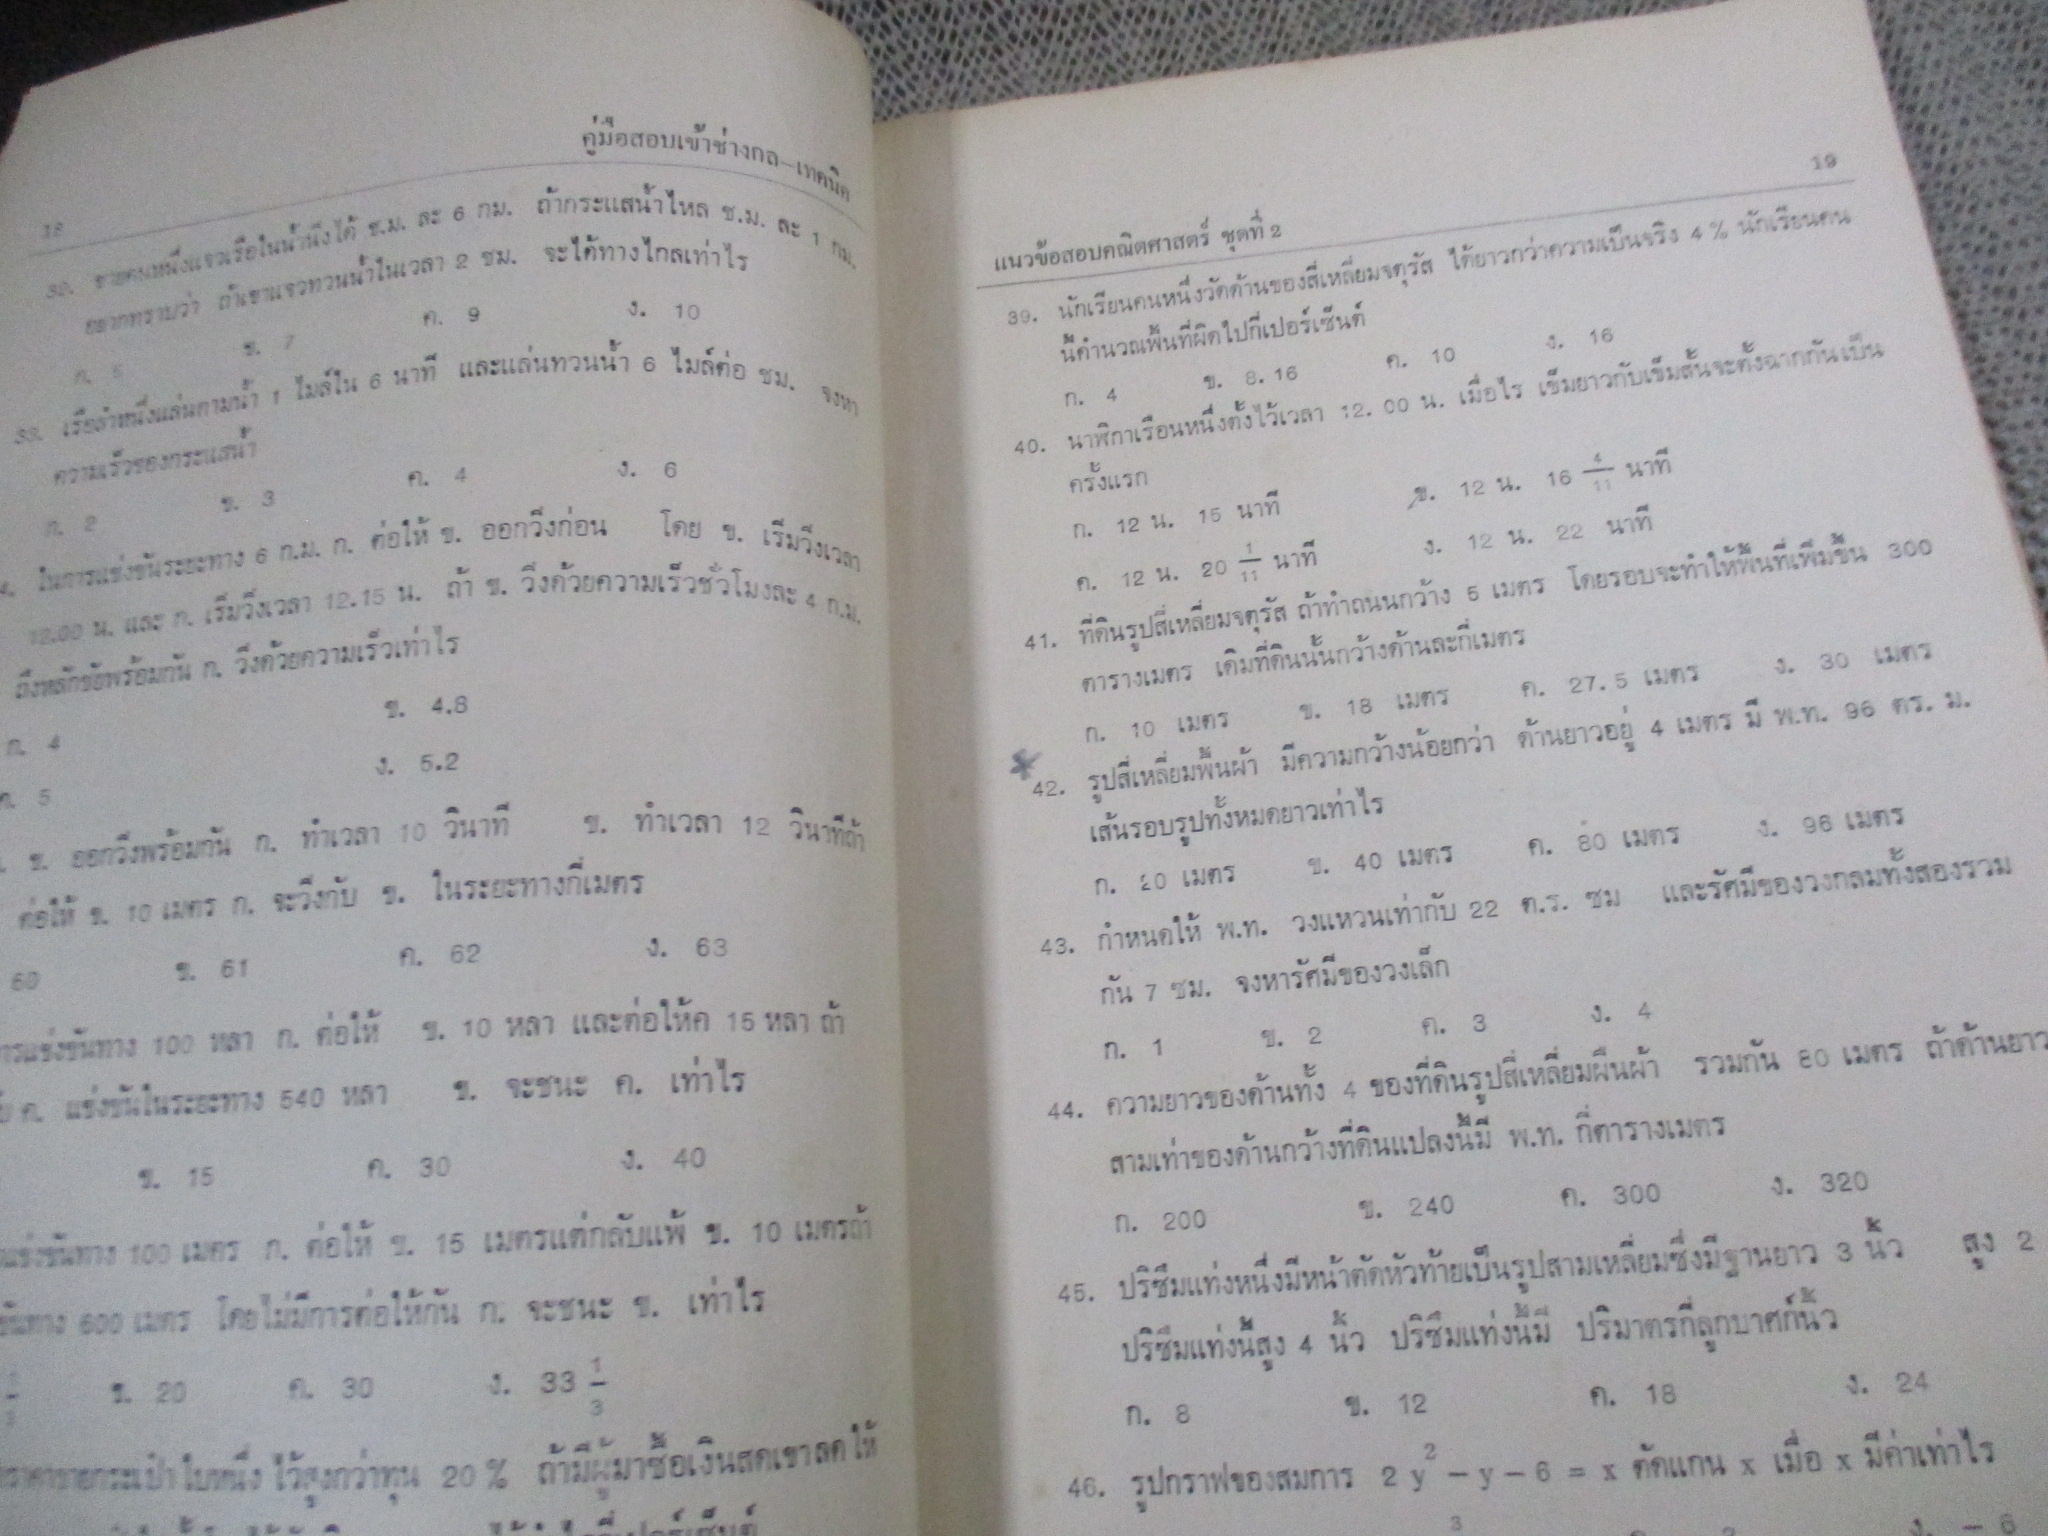 18
คู่มือสอบเข้าช่างกล–เทคนิค
32. ชายคนหนึ่งแจวเรือในน้ำนิ่งได้ ช.ม. ละ 6 กม. ถ้ากระแสน้ำไหล ช.ม. ละ 1 กม.
อยากทราบว่า ถ้าเขาแจวทวนน้ำในเวลา 2 ชม. จะได้ทางไกลเท่าไร
ก. 5 ข. 7 ค. 9 ง. 10
33. เรือลำหนึ่งแล่นตามน้ำ 1 ไมล์ใน 6 นาที และแล่นทวนน้ำ 6 ไมล์ต่อ ชม. จงหา
ความเร็วของกระแสน้ำ
ก. 2 ข. 3 ค. 4 ง. 6
4. ในการแข่งขันระยะทาง 6 ก.ม. ก. ต่อให้ ข. ออกวิ่งก่อน โดย ข. เริ่มวิ่งเวลา
12.00 น. และ ก. เริ่มวิ่งเวลา 12.15 น. ถ้า ข. วิ่งด้วยความเร็วชั่วโมงละ 4 ก.ม.
ถึงหลักชัยพร้อมกัน ก. วิ่งด้วยความเร็วเท่าไร
ก. 4 ข. 4.8
ค. 5 ง. 5.2
ข. ออกวิ่งพร้อมกัน ก. ทำเวลา 10 วินาที ข. ทำเวลา 12 วินาทีถ้า
ต่อให้ ข. 10 เมตร ก. จะวิ่งกับ ข. ในระยะทางกี่เมตร
60 ข. 61 ค. 62 ง. 63
การแข่งขันทาง 100 หลา ก. ต่อให้ ข. 10 หลา และต่อให้ค 15 หลา ถ้า
ค. แข่งขันในระยะทาง 540 หลา ข. จะชนะ ค. เท่าไร
ข. 15 ค. 30 ง. 40
แข่งขันทาง 100 เมตร ก. ต่อให้ ข. 15 เมตรแต่กลับแพ้ ข. 10 เมตรถ้า
ขันทาง 600 เมตร โดยไม่มีการต่อให้กัน ก. จะชนะ ข. เท่าไร
ข. 20 ค. 30 ง. 33 1/3
ราคาขายกระเป๋าใบหนึ่ง ไว้สูงกว่าทุน 20 % ถ้ามีผู้มาซื้อเงินสดเขาลดให้
19
แนวข้อสอบคณิตศาสตร์ ชุดที่ 2
39. นักเรียนคนหนึ่งวัดด้านของสี่เหลี่ยมจตุรัส ได้ยาวกว่าความเป็นจริง 4 % นักเรียนคน
นี้คำนวณพื้นที่ผิดไปกี่เปอร์เซ็นต์
ก. 4 ข. 8.16 ค. 10 ง. 16
40. นาฬิกาเรือนหนึ่งตั้งไว้เวลา 12.00 น. เมื่อไร เข็มยาวกับเข็มสั้นจะตั้งฉากกันเป็น
ครั้งแรก
ก. 12 น. 15 นาที ข. 12 น. 16 4/11 นาที
ค. 12 น. 20 1/11 นาที ง. 12 น. 22 นาที
41. ที่ดินรูปสี่เหลี่ยมจตุรัส ถ้าทำถนนกว้าง 5 เมตร โดยรอบจะทำให้พื้นที่เพิ่มขึ้น 300
ตารางเมตร เดิมที่ดินนั้นกว้างด้านละกี่เมตร
ก. 10 เมตร ข. 18 เมตร ค. 27.5 เมตร ง. 30 เมตร
42. รูปสี่เหลี่ยมพื้นผ้า มีความกว้างน้อยกว่า ด้านยาวอยู่ 4 เมตร มี พ.ท. 96 ตร. ม.
เส้นรอบรูปทั้งหมดยาวเท่าไร
ก. 20 เมตร ข. 40 เมตร ค. 80 เมตร ง. 96 เมตร
43. กำหนดให้ พ.ท. วงแหวนเท่ากับ 22 ต.ร. ซม และรัศมีของวงกลมทั้งสองรวม
กัน 7 ซม. จงหารัศมีของวงเล็ก
ก. 1 ข. 2 ค. 3 ง. 4
44. ความยาวของด้านทั้ง 4 ของที่ดินรูปสี่เหลี่ยมผืนผ้า รวมกัน 80 เมตร ถ้าด้านยาว
สามเท่าของด้านกว้างที่ดินแปลงนี้มี พ.ท. กี่ตารางเมตร
ก. 200 ข. 240 ค. 300 ง. 320
45. ปริซึมแท่งหนึ่งมีหน้าตัดหัวท้ายเป็นรูปสามเหลี่ยมซึ่งมีฐานยาว 3 นิ้ว สูง 2
ปริซึมแท่งนี้สูง 4 นิ้ว ปริซึมแท่งนี้มี ปริมาตรกี่ลูกบาศก์นิ้ว
ก. 8 ข. 12 ค. 18 ง. 24
46. รูปกราฟของสมการ 2 y² – y – 6 = x ตัดแกน x เมื่อ x มีค่าเท่าไร
ง. – 6